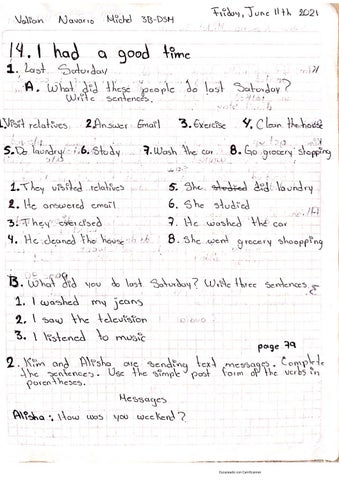 Valian Navarro Michel 3B-DSM
Friday, June 11th 2021
14. I had a good time
1. Last Saturday
A. What did these people do last Saturday?
Write sentences.
1. Visit relatives 2. Answer Email 3. Exercise 4. Clean the house
5. Do laundry 6. Study 7. Wash the car 8. Go grocery shopping
1. They visited relatives
2. He answered email
3. They exercised
4. He cleaned the house
5. She studied did laundry
6. She studied
7. He washed the car
8. She went grocery shoopping
B. What did you do last Saturday? Write three sentences.
1. I washed my jeans
2. I saw the television
3. I listened to music
page 79
2. Kim and Alisha are sending text messages. Complete
the sentences. Use the simple past form of the verbs in
parentheses.
Messages
Alisha: How was you weekend?
Escaneado con CamScanner